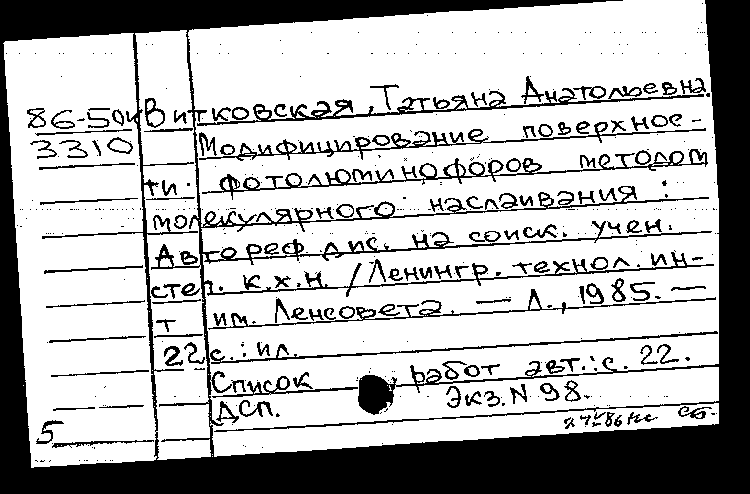 86-50и Витковская, Татьяна Анатольевна.
3310 Модифицирование поверхнос-
ти фотолюминофоров методом
молекулярного наслаивания:
Автореф. дис. на соиск. учен.
степ. к.х.н. / Ленингр. технол. ин-
т им. Ленсовета. — Л., 1985. —
22 с.: ил.
Список работ авт.: с. 22.
ДСП. Экз. N 98.
5